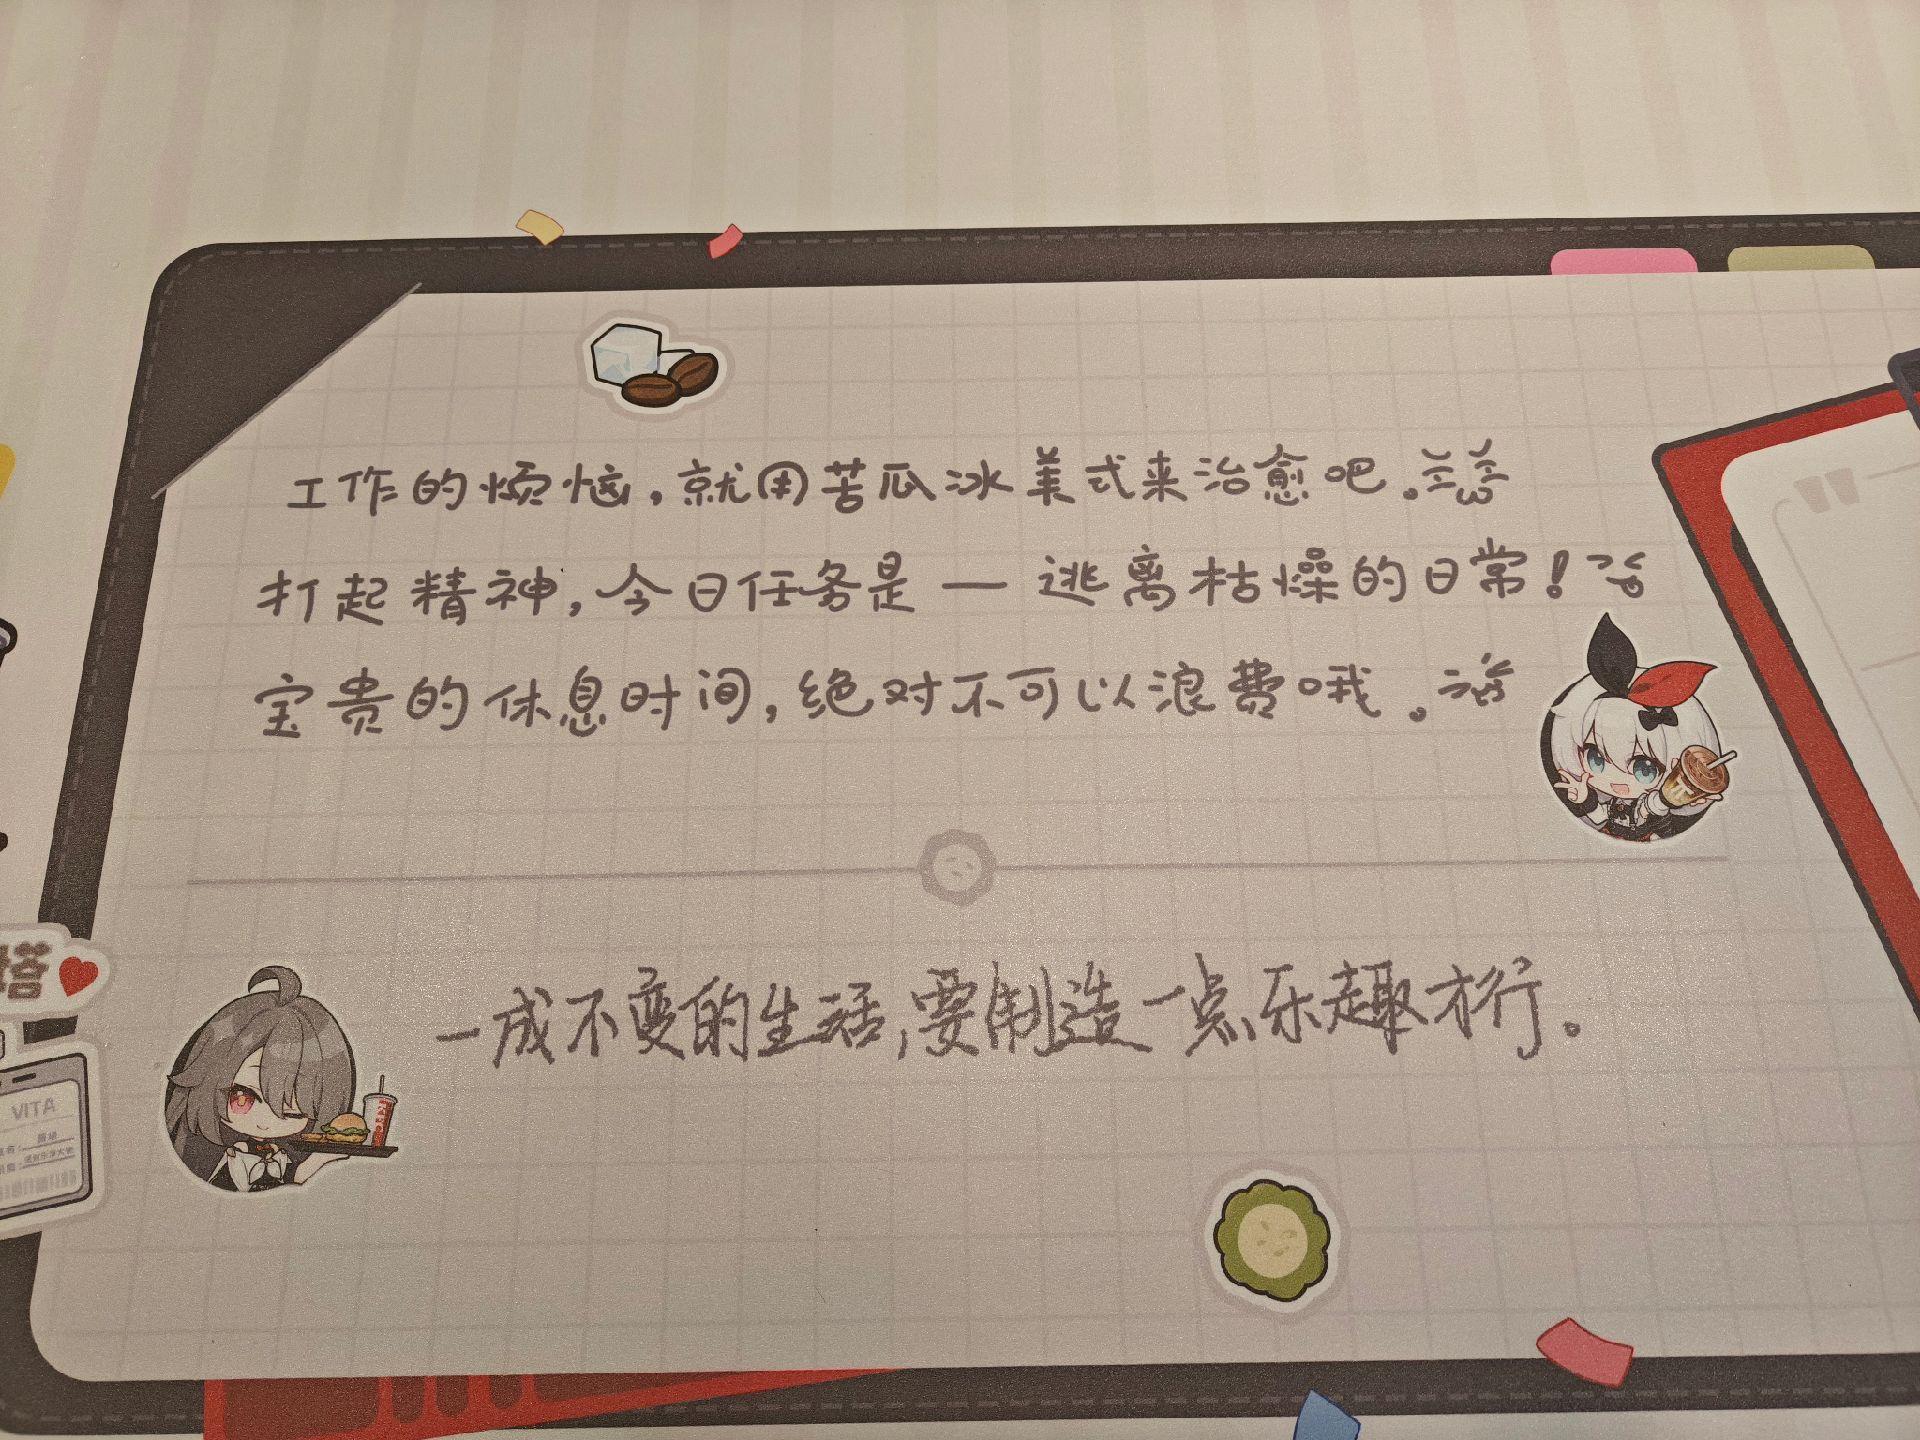 工作的烦恼，就用苦瓜冰美式来治愈吧。
打起精神，今日任务是—逃离枯燥的日常！
宝贵的休息时间，绝对不可以浪费哦。
一成不变的生活，要制造一点乐趣才行。
VITA